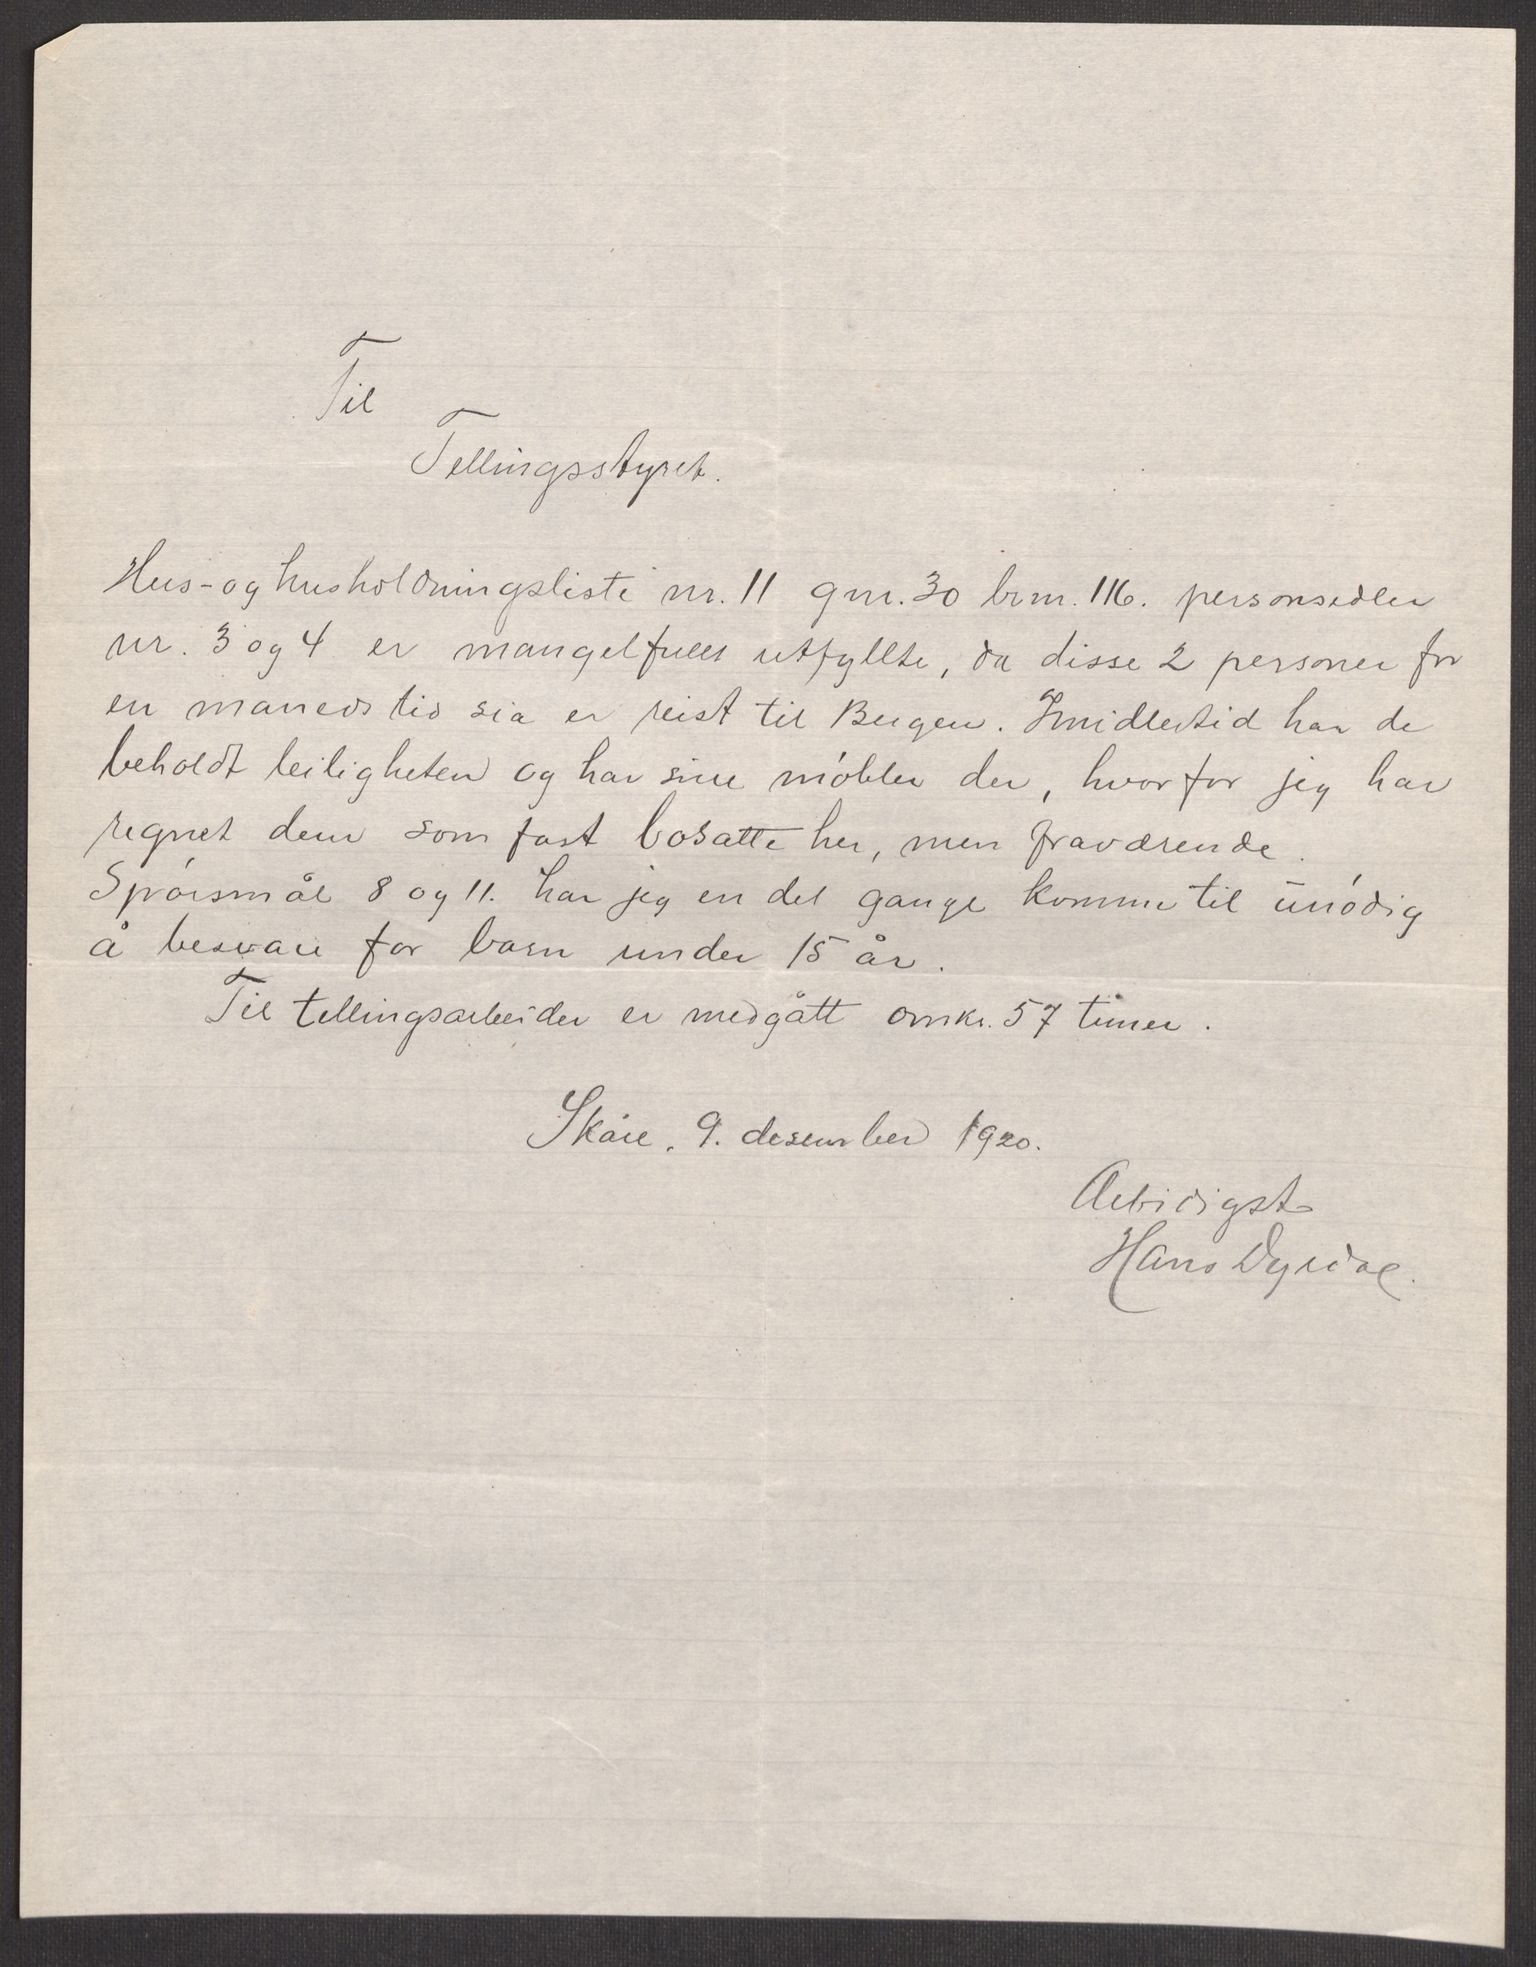 Til
Tellingsstyret.
Hus- og husholdningsliste nr. 11 gnr. 30 brnr. 116. personsedler
nr. 3 og 4 er mangelfullt utfyllte, da disse 2 personer for
en maneds tid sia er reist til Bergen. Imidlertid har de
beholdt leiligheten og har sine möbler der, hvorfor jeg har
regnet dem som fast bosatte her, men fraværende.
Spörsmål 8 og 11. har jeg en del gange komme til unödig
å besvare for barn under 15 år.
Til tellingsarbeider er medgått omkr. 57 timer.
Skåre. 9. desember 1920.
Aerbödigst
Hans Dyrdal.